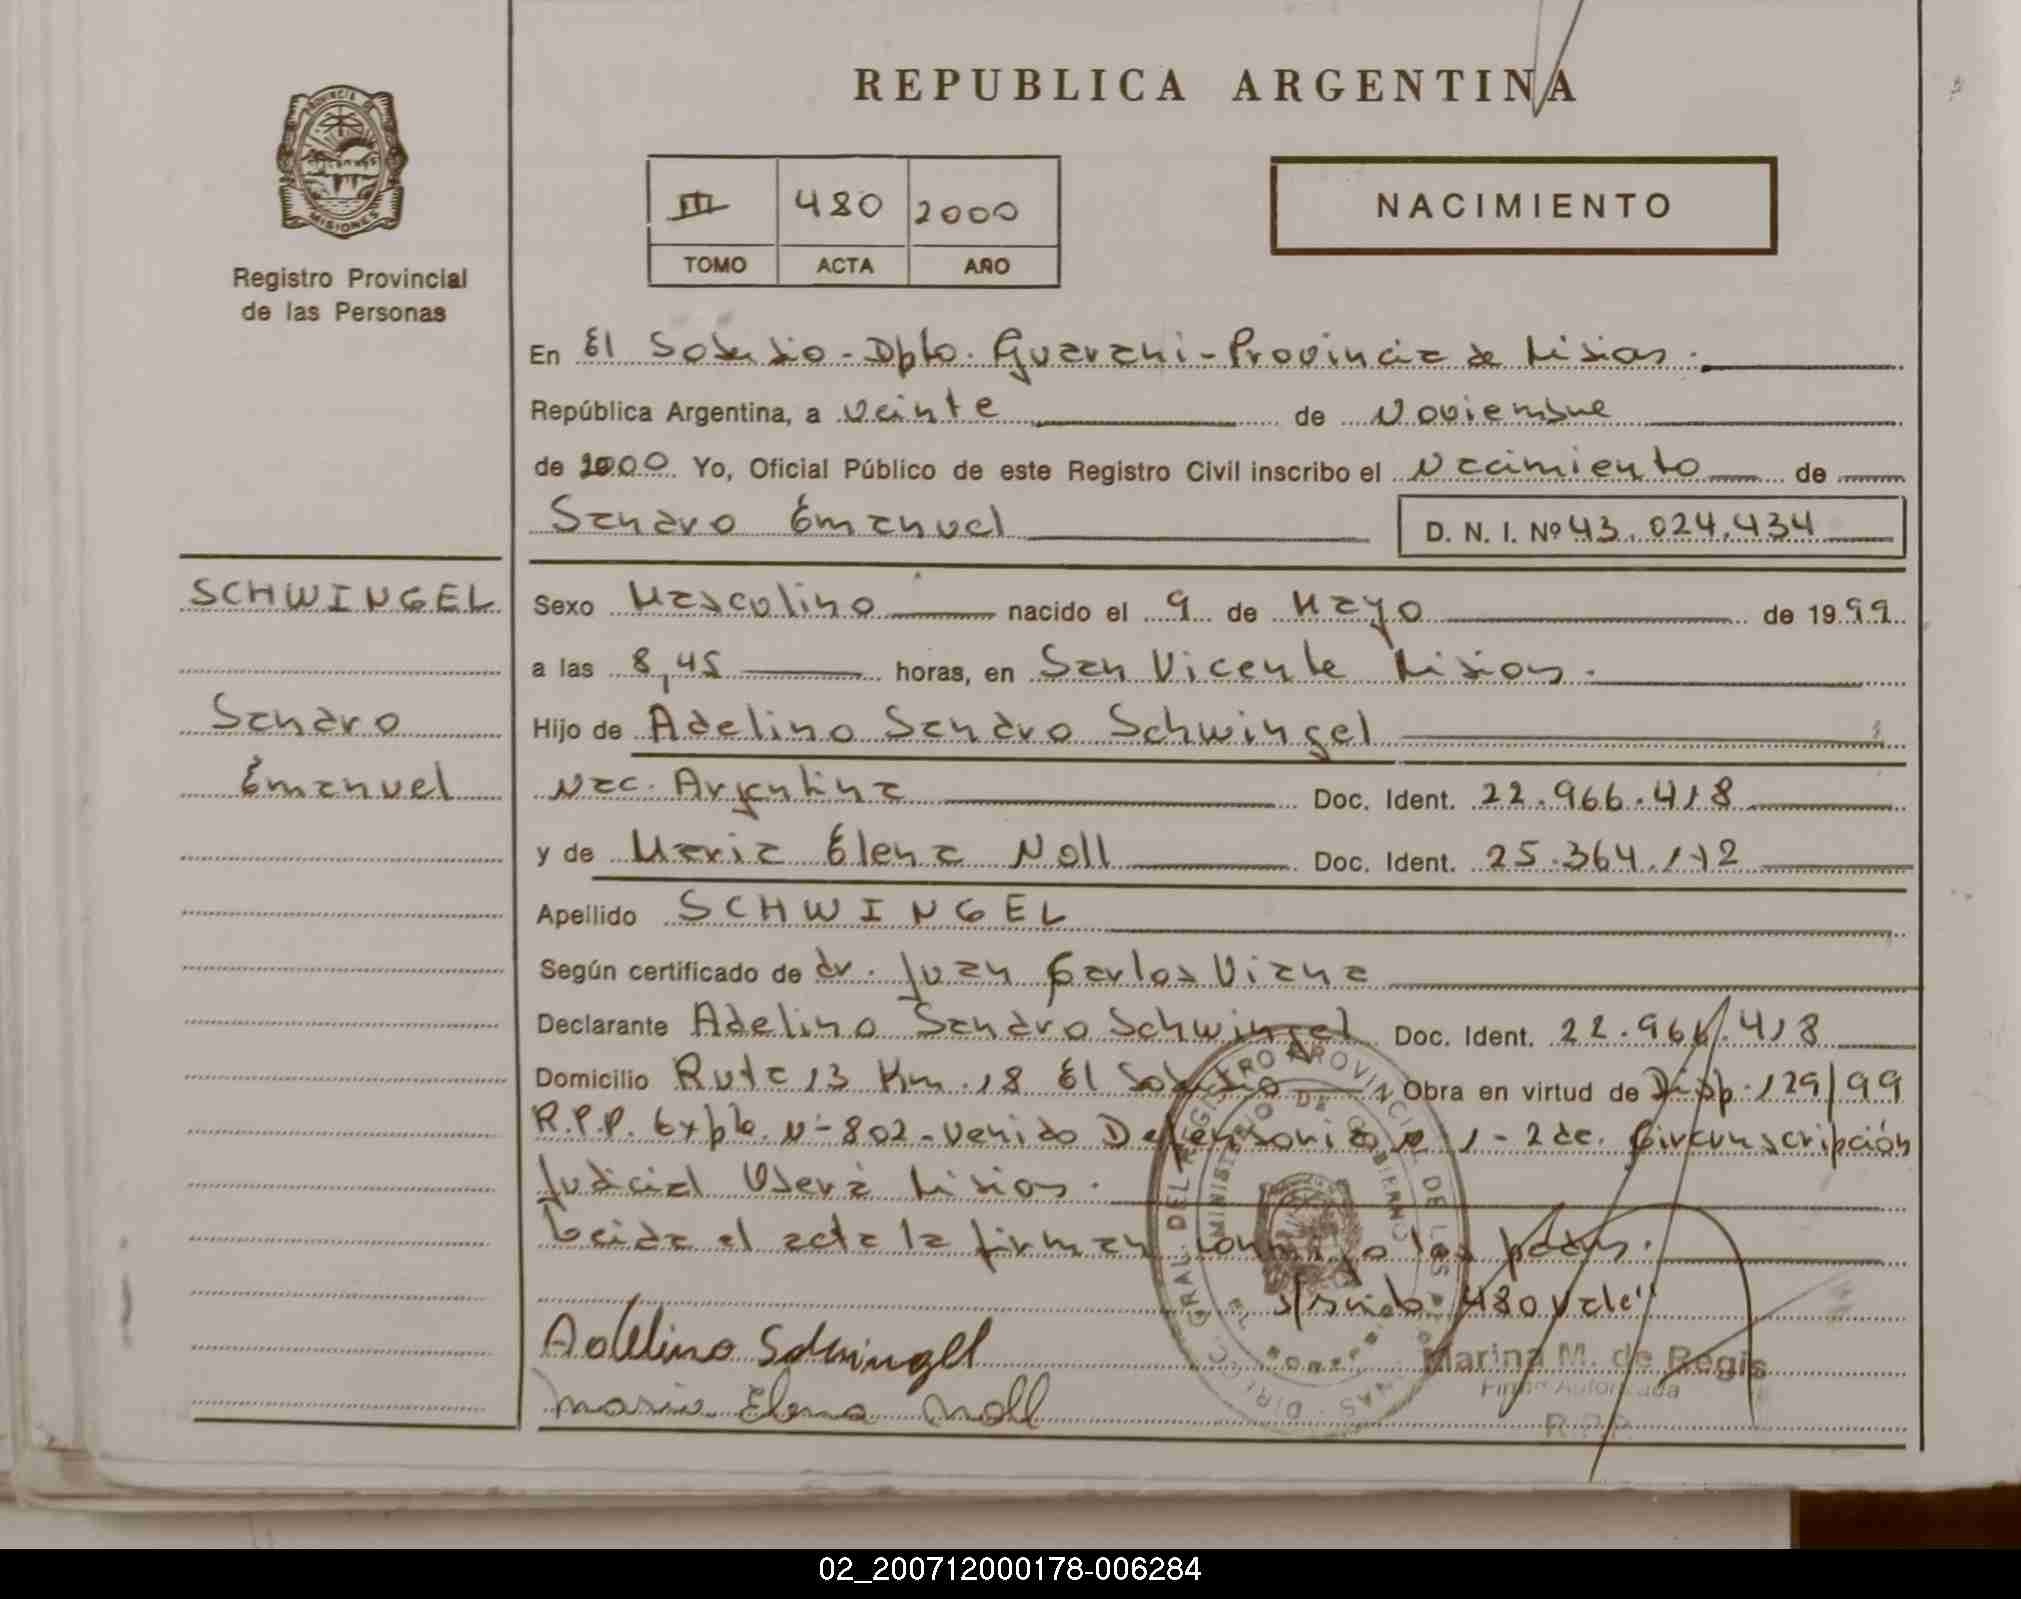 REPUBLICA ARGENTINA
PROVINCIA DE
MISIONES
Registro Provincial
de las Personas
III 480 2000
TOMO ACTA AÑO
NACIMIENTO
En El Soberbio - Dpto. Guarani - Provincia de Misiones.
República Argentina, a veinte de Noviembre
de 2000 Yo, Oficial Público de este Registro Civil inscribo el Nacimiento de
Sandro Emanuel D. N. I. Nº 43.024.434
SCHWINGEL
Sandro
Emanuel
Sexo Masculino nacido el 9 de Mayo de 1999
a las 8,45 horas, en San Vicente Misiones.
Hijo de Adelino Sandro Schwingel
Nac. Argentina Doc. Ident. 22.966.418
y de Maria Elena Noll Doc. Ident. 25.364.112
Apellido SCHWINGEL
Según certificado de dr. Juan Carlos Viana
Declarante Adelino Sandro Schwingel Doc. Ident. 22.966.418
Domicilio Ruta 13 Km. 18 El Soberbio Obra en virtud de Disp. 129/99
R.P.P. Expte. Nº 802 - venido Defensoria Nº 1 - 2da. Circunscripción
Judicial Oberá Misiones.
Leida el acta la firman conmigo los padres.
480 vale"
Adelino Schwingel
Maria Elena Noll
DIREC. GRAL. DEL REGISTRO PROVINCIAL DE LAS PERSONAS
MINISTERIO DE GOBIERNO
Marina M. de Regis
Firma Autorizada
R.P.P.
02_200712000178-006284